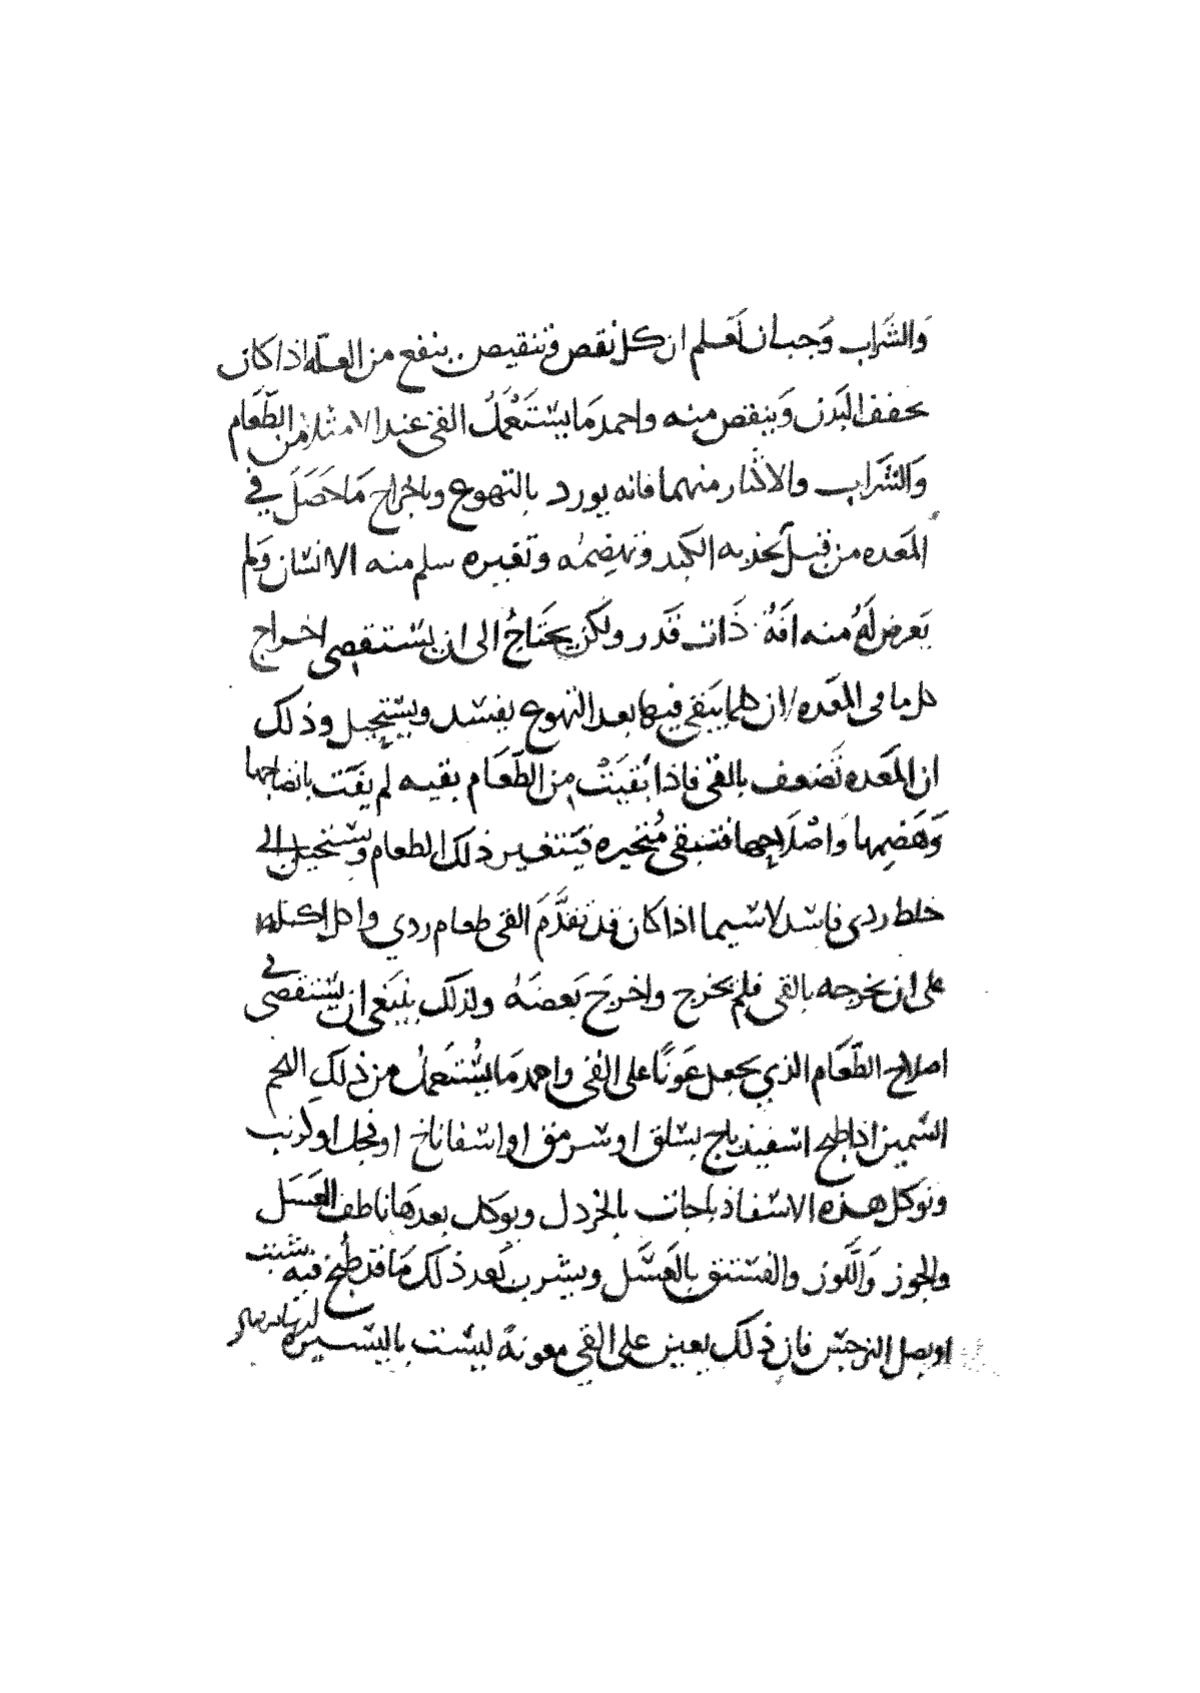 والشَّراب وَجب ان تَعلم ان كل نقص وتنقيص ينفع من العلّه اذا كان
يجفف البَدن وَينقص منه واحمد مَا يسْتَعْمَلُ القى عند الامتلا من الطّعَام
وَالشَّراب والاكثار منهما فانه يورد بالتهوع وباخراج مَا حَصَلَ في
المَعده من قبل تجذبه الكبد وتهضمه وتغيره سلم منه الانسَان وَلم
يَعرض لَهُ منه افَهُ ذَات قَدر ولكن يحتَاجُ الى ان يسْتقصى اخراج
كل ما فى المعَده لان كلما يَبقى فيها بعد التهوع يفسد ويستَحيل وذلك
ان المَعَده تَضعف بالقى فاذا بُقيَتْ من الطّعَام بقيه لم يفَت بانضاجها
وَهَضمِها وَاصْلَاحِها فتبقى مُتحيره فيَتغير ذلك الطعام ويسْتحيل الى
خلط ردى فاسد لاسيما اذا كان قد تقدَّمَ القى طعام ردي واكل
على ان يخرجه بالقى فلم يخرج واخرج بَعضَهُ ولذلك ينبَغى ان يسْتقصى في
اصلاح الطَّعَام الذي يجعل عَونًا على القى واحمد مَا يسْتَعمَلُ من ذلكِ اللحم
السَّمين اذا طبخ اسفيذباج بسلق او سرمق او اسفاناخ او فجل او كرنب
وَتوكل هذه الاسفاذباجات بالخردل ويوكل بعدهَا ناطف العسَل
والجوز وَاللّوز والفستق بالعَسَل ويشرب بَعد ذلك مَا قد طُبخ فيه شبت
او بصل النرجس فان ذلك يعين على القى معونةً ليسَت باليسيره